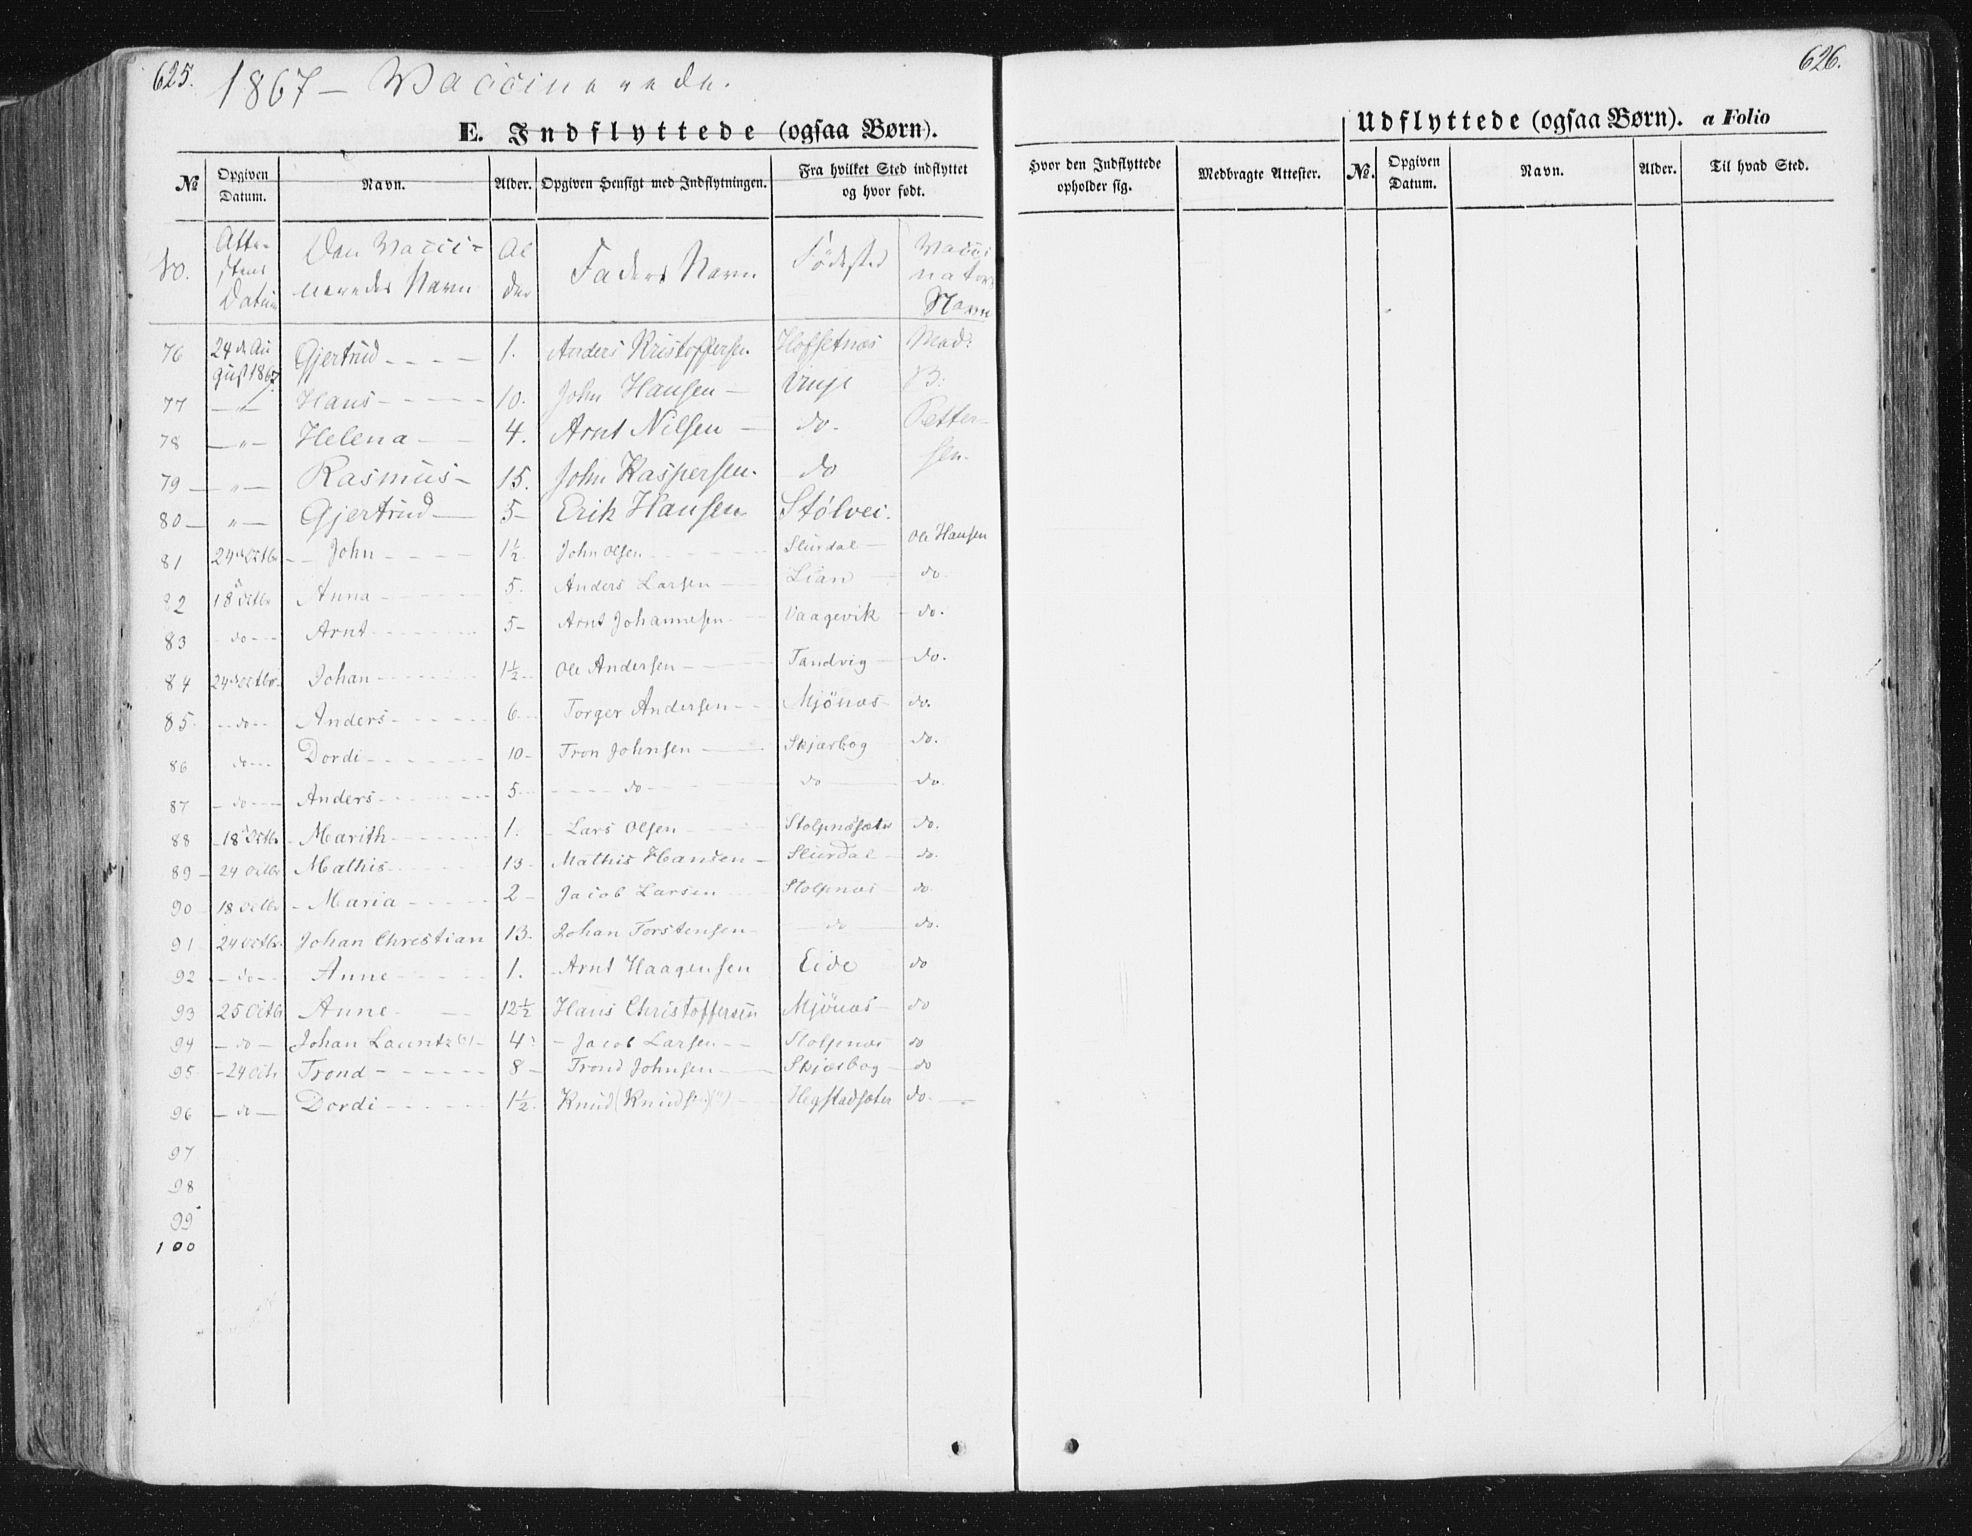 625.
1867 – Vaccinerede.
E. Indflyttede (ogsaa Børn).
№ Opgiven Datum. Navn. Alder. Opgiven Hensigt med Indflytningen. Fra hvilket Sted indflyttet og hvor født.
No. Attestens Datum Den Vaccineredes Navn Alder Faders Navn Fødested Vaccinators Navn
76 24de August 1867. Gjertrud 1. Anders Kristoffersen Hofsetnæs Mads
77 " Hans 10. John Hansen Vinje B.
78 " Helena 4. Arnt Nilsen do. Petter-
79 " Rasmus 15. John Kaspersen. do sen.
80 " Gjertrud 5 Erik Hansen Stølvei.
81 24de Octbr John 1½ John Olsen Slurdal Ole Hansen
82 18 Octbr Anna 5. Anders Larsen Lian do.
83 do Arnt 5 Arnt Johannesen Vaagevik do.
84 24de Octbr Johan 1½ Ole Andersen Tandvig do.
85 do Anders 6 Torger Andersen Mjönæs do.
86 do Dordi 10 Tron Johnsen Skjærbog do.
87 do Anders 5 do do do.
88 18 Octbr Marith 1. Lars Olsen Stolpnæsæter do.
89 24 Octbr Mathis 13 Mathis Hansen Slurdal do.
90 18 Octbr Maria 2 Jacob Larsen Stolpnæs do.
91 24 Octbr Johan Christian 13. Johan Torstensen do do.
92 do Anne 1. Arnt Haagensen Eide do
93 25 Octbr Anne 12½ Hans Christoffersen Mjönæs do
94 do Johan Launtz(?) 4 Jacob Larsen Stolpnæs do
95 24 Octb Trond 8 Trond Johnsen Skjærbog do
96 do Dordi 1½ Knud (Knudsen)(?) Hegstadsæter do.
97
98
99
100
626.
Udflyttede (ogsaa Børn). a Folio
Hvor den Indflyttede opholder sig. Medbragte Attester. №. Opgiven Datum. Navn. Alder. Til hvad Sted.